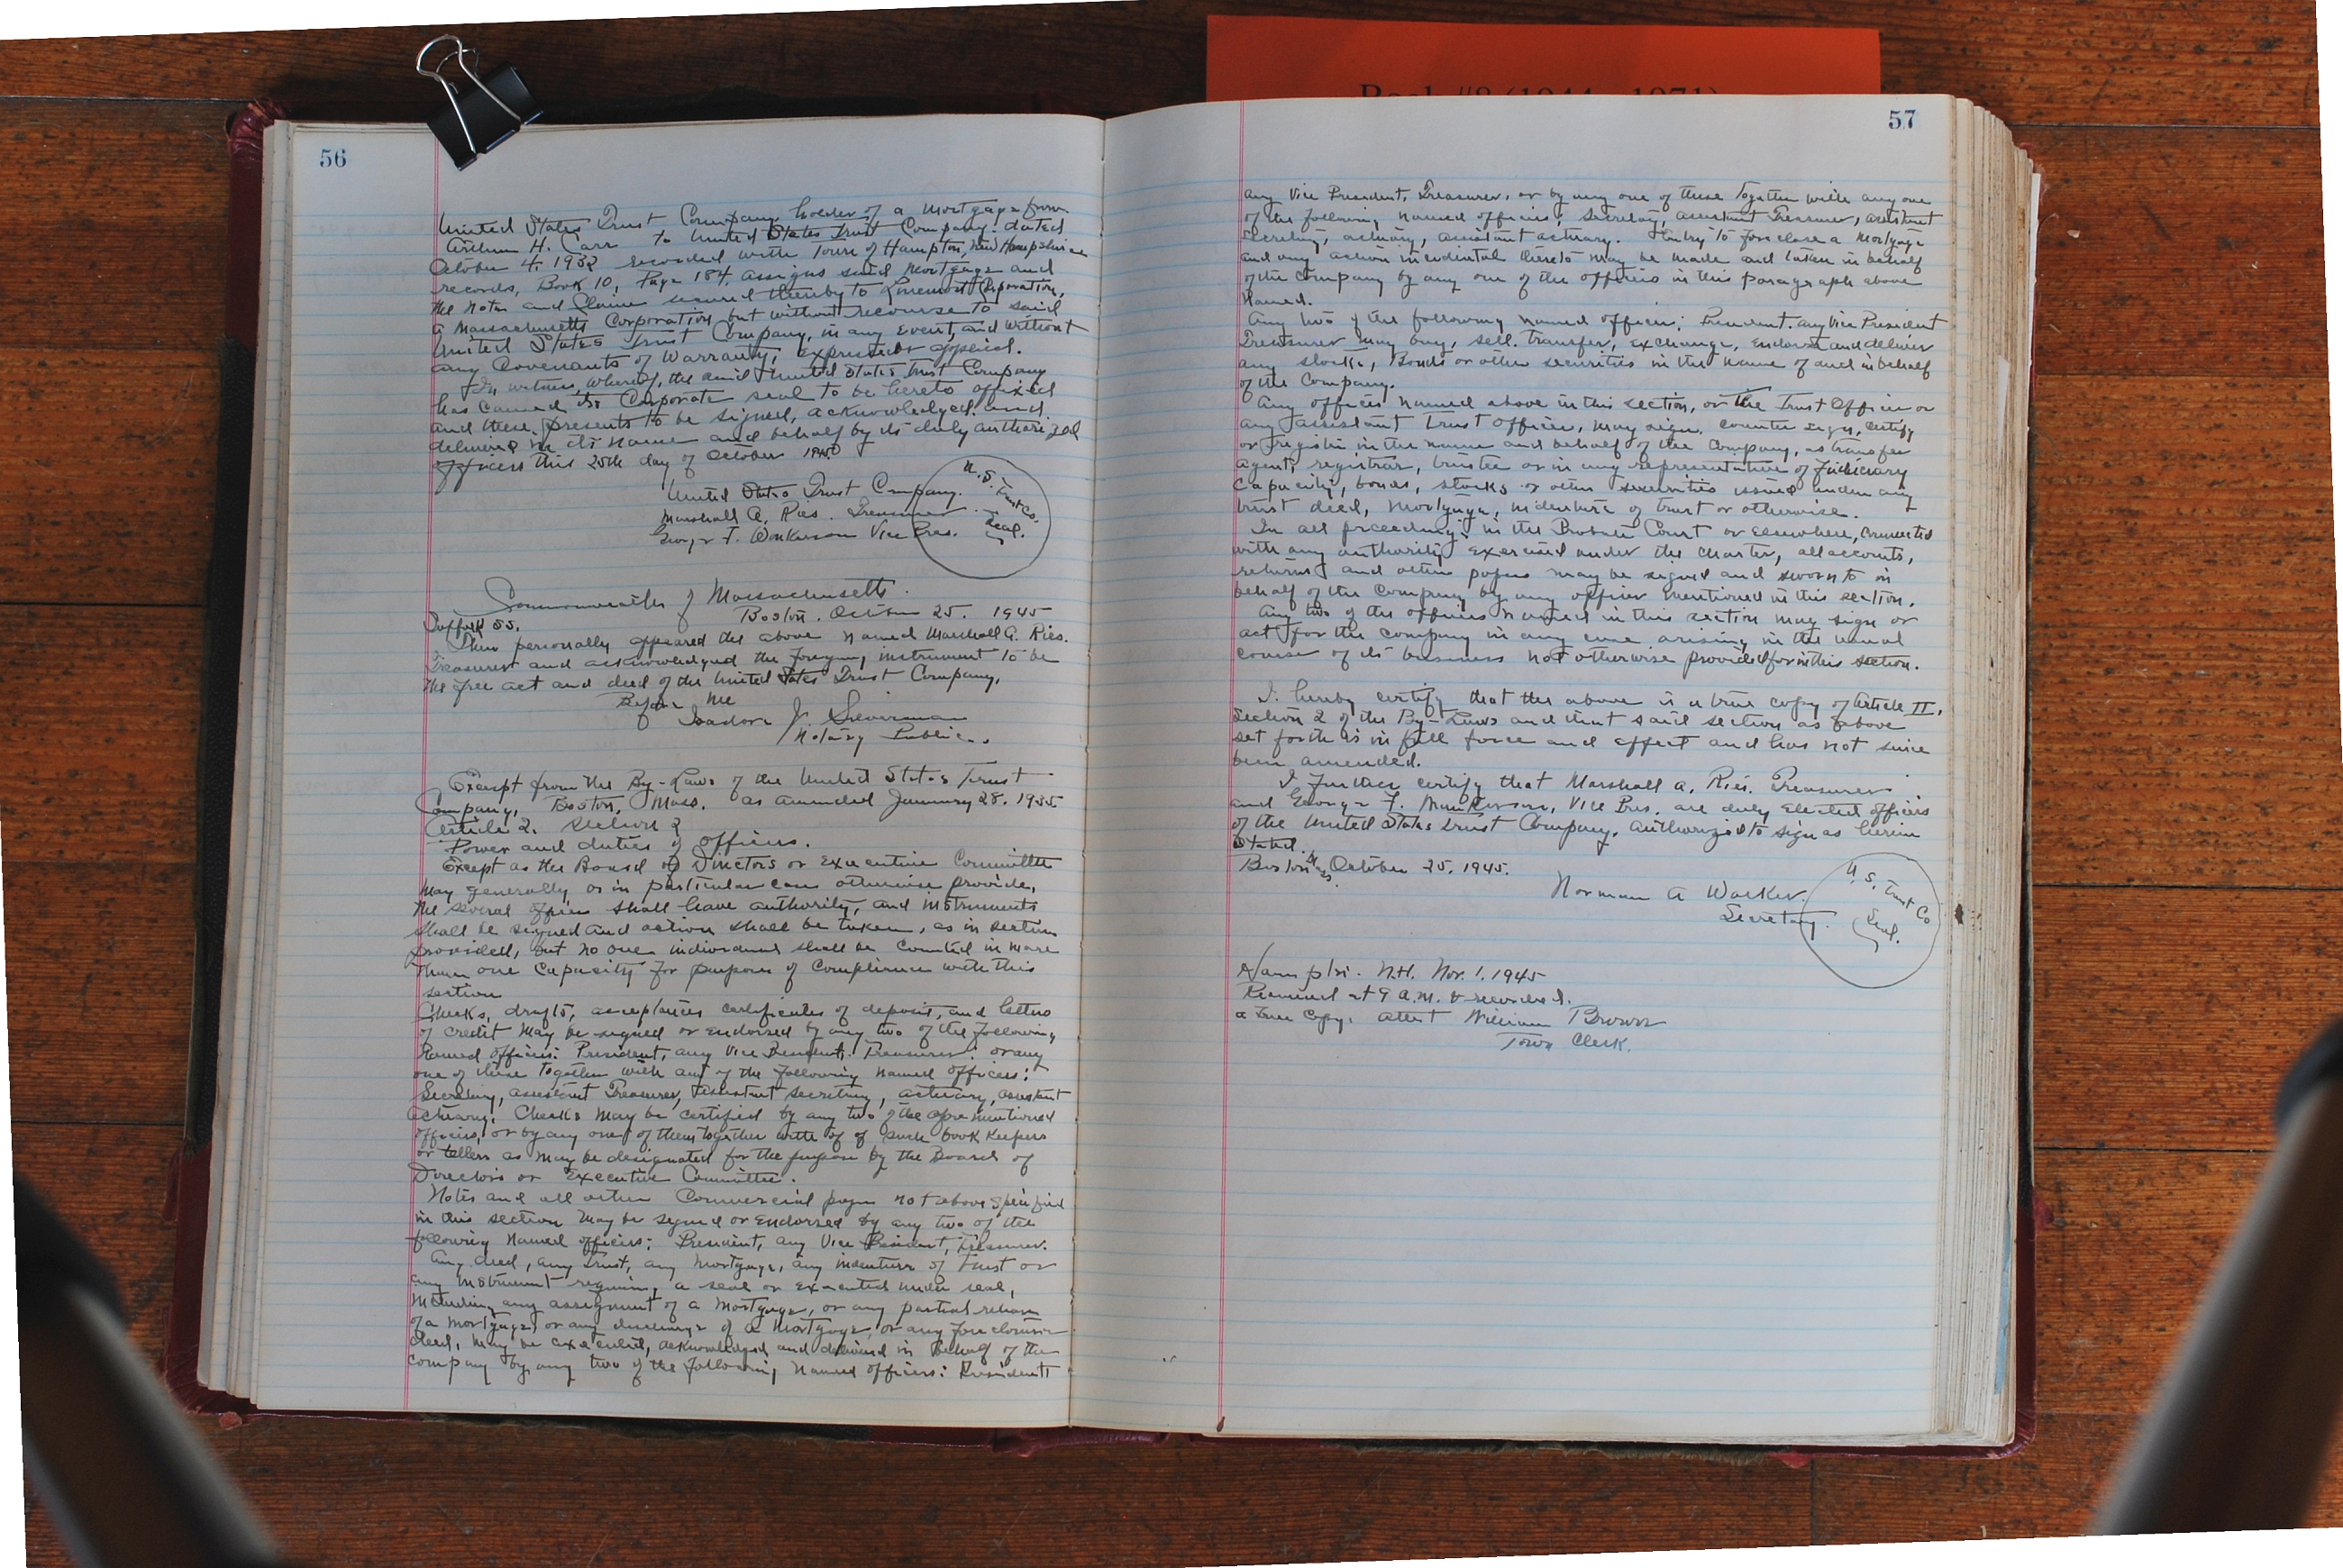 Book #8 (1944 - 1971)
56
United States Trust Company, holder of a Mortgage from
Arthur H. Carr to United States Trust Company dated
October 4, 1932 recorded with Town of Hampton, New Hampshire
records, Book 10, Page 184, assigns said Mortgage and
the note and Claim secured thereby to Corporation,
a Massachusetts Corporation but without recourse to said
United States Trust Company, in any event, and without
any Covenants of Warranty, express or applied.
In witness whereof, the said United States Trust Company
has caused its Corporate seal to be hereto affixed
and these presents to be signed, acknowledged and
delivered in its name and behalf by its duly authorized
officers this 25th day of October 1945
United States Trust Company.
Marshall A. Ries. Treasurer
George F. Vice Pres.
U. S. Trust Co.
Seal.
Commonwealth of Massachusetts.
Boston. October 25. 1945
Suffolk SS.
Then personally appeared the above named Marshall A. Ries.
Treasurer and acknowledged the foregoing instrument to be
the free act and deed of the United States Trust Company,
Before Me
Isadore J. Silverman
Notary Public.
Except from the By-Laws of the United States Trust
Company, Boston, Mass. as amended January 28. 1935
Article 2. Section 2
Power and duties of officers.
Except as the Board of Directors or Executive Committee
may generally or in particular case otherwise provide,
the several officers shall have authority, and instruments
shall be signed and action shall be taken, as in section
provided, but no one individual shall be counted in more
than one capacity for purpose of complience with this
section
Checks, drafts, acceptances certificates of deposit, and letters
of credit may be signed or endorsed by any two of the following
named officers: President, any Vice President, Treasurer; or any
one of these together with any of the following named officers:
Secretary, assistant Treasurer, assistant secretary, actuary, assistant
actuary. Checks may be certified by any two of the afore mentioned
officers, or by any one of them together with of of such book keepers
or tellers as may be designated for the purpose by the Board of
Directors or Executive Committee.
Notes and all other Commercial paper not above specified
in this section may be signed or endorsed by any two of the
following named officers: President, any Vice President, Treasurer.
Any deed, any trust, any mortgage, any indenture of trust or
any instrument requiring a seal or executed under seal,
including any assignment of a Mortgage, or any partial release
of a mortgage, or any discharge of a Mortgage, or any foreclosure
deed, may be executed, acknowledged and delivered in behalf of the
company by any two of the following named officers: President
57
any Vice President, Treasurer, or by any one of these together with any one
of the following named officers, Secretary, assistant Treasurer, assistant
secretary, actuary, assistant actuary. Entry to foreclose a Mortgage
and any action incidental thereto may be made and taken in behalf
of the company by any one of the officers in this paragraph above
named.
Any two of the following named officers: President, any Vice President
Treasurer may buy, sell, transfer, exchange, endorse and deliver
any stocks, Bonds or other securities in the name of and in behalf
of the Company.
Any officer named above in this section, or the Trust Officer or
any assistant Trust Officer, may sign, counter sign, certify
or register in the name and behalf of the Company, as transfer
agent, registrar, trustee or in any representative of fiduciary
capacity, bonds, stocks or other securities issued under any
trust deed, mortgage, indenture of trust or otherwise.
In all proceedings in the Probate Court or elsewhere, connected
with any authority exercised under the charter, all accounts,
returns and other papers may be signed and sworn to in
behalf of the Company by any officer mentioned in this section.
Any two of the officers named in this section may sign or
act for the company in any case arising in the usual
course of its business not otherwise provided for in this section.
I hereby certify that the above is a true copy of Article II,
Section 2 of the By-Laws and that said section as above
set forth is in full force and effect and has not since
been amended.
I further certify that Marshall A. Ries. Treasurer
and George F. Vice Pres. are duly elected officers
of the United States Trust Company, authorized to sign as herein
stated.
Boston Ms. October 25. 1945.
Norman A Walker.
Secretary.
U. S. Trust Co
Seal.
Hampton. N.H. Nov. 1. 1945
Received at 9 A.M. & recorded.
a True Copy. Attest William Brown
Town Clerk.